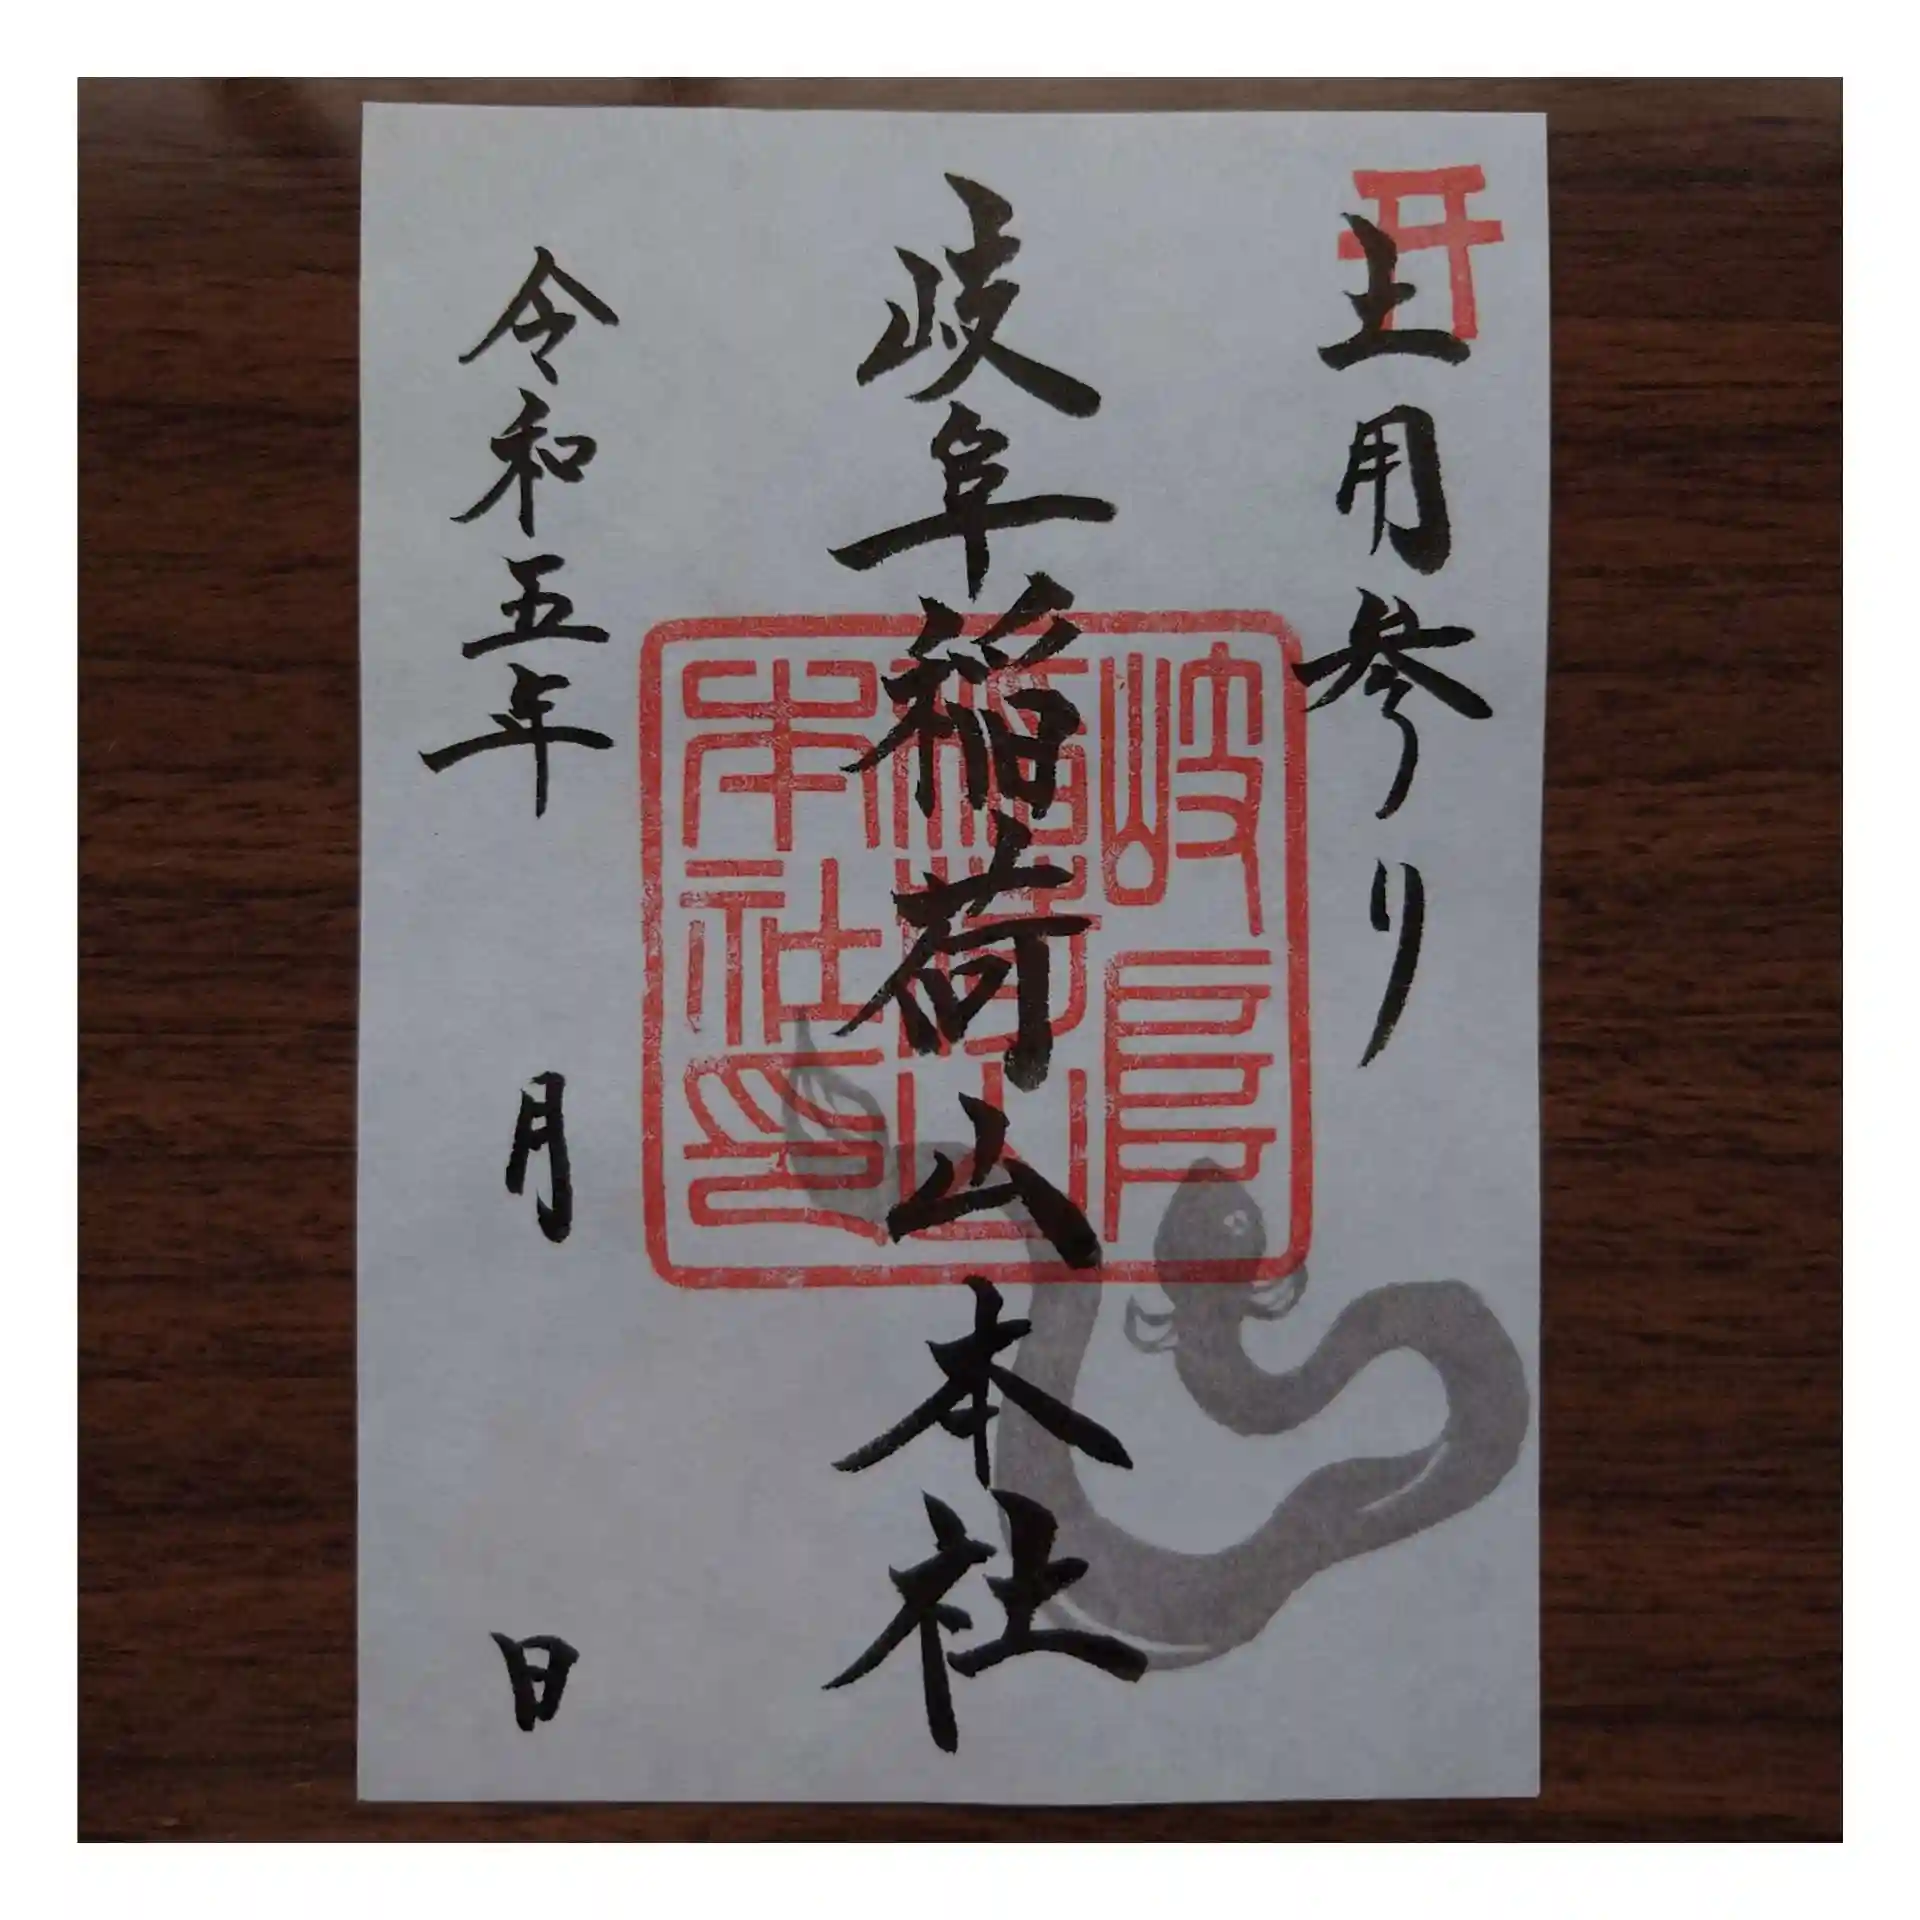 土用参り
岐阜稲荷山本社
岐阜稲荷山本社印
令和五年 月 日